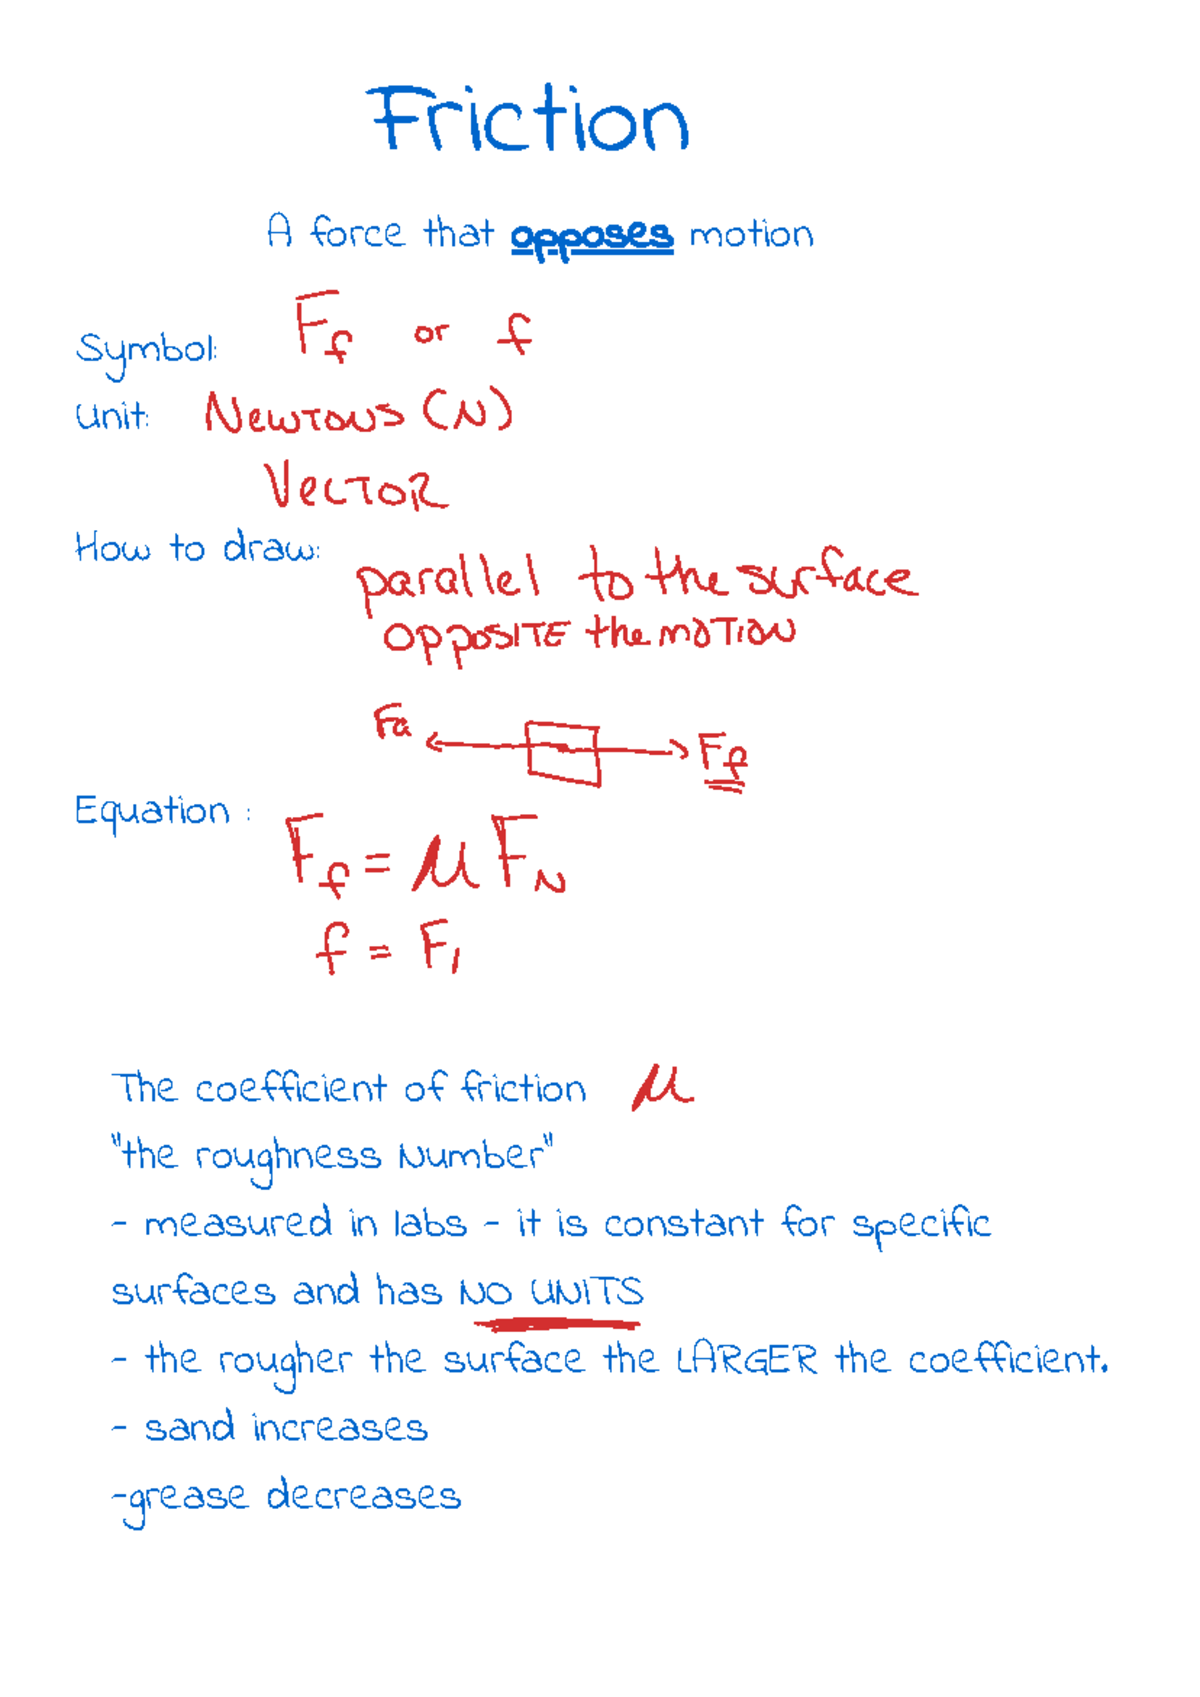 Friction
A force that opposes motion
Symbol: Ff or f
Unit: Newtons (N)
Vector
How to draw:
parallel to the surface
opposite the motion
Fa Ff
Equation :
Ff = μ FN
f = F,
The coefficient of friction μ
"the roughness Number"
- measured in labs - it is constant for specific
surfaces and has NO UNITS
- the rougher the surface the LARGER the coefficient.
- sand increases
-grease decreases